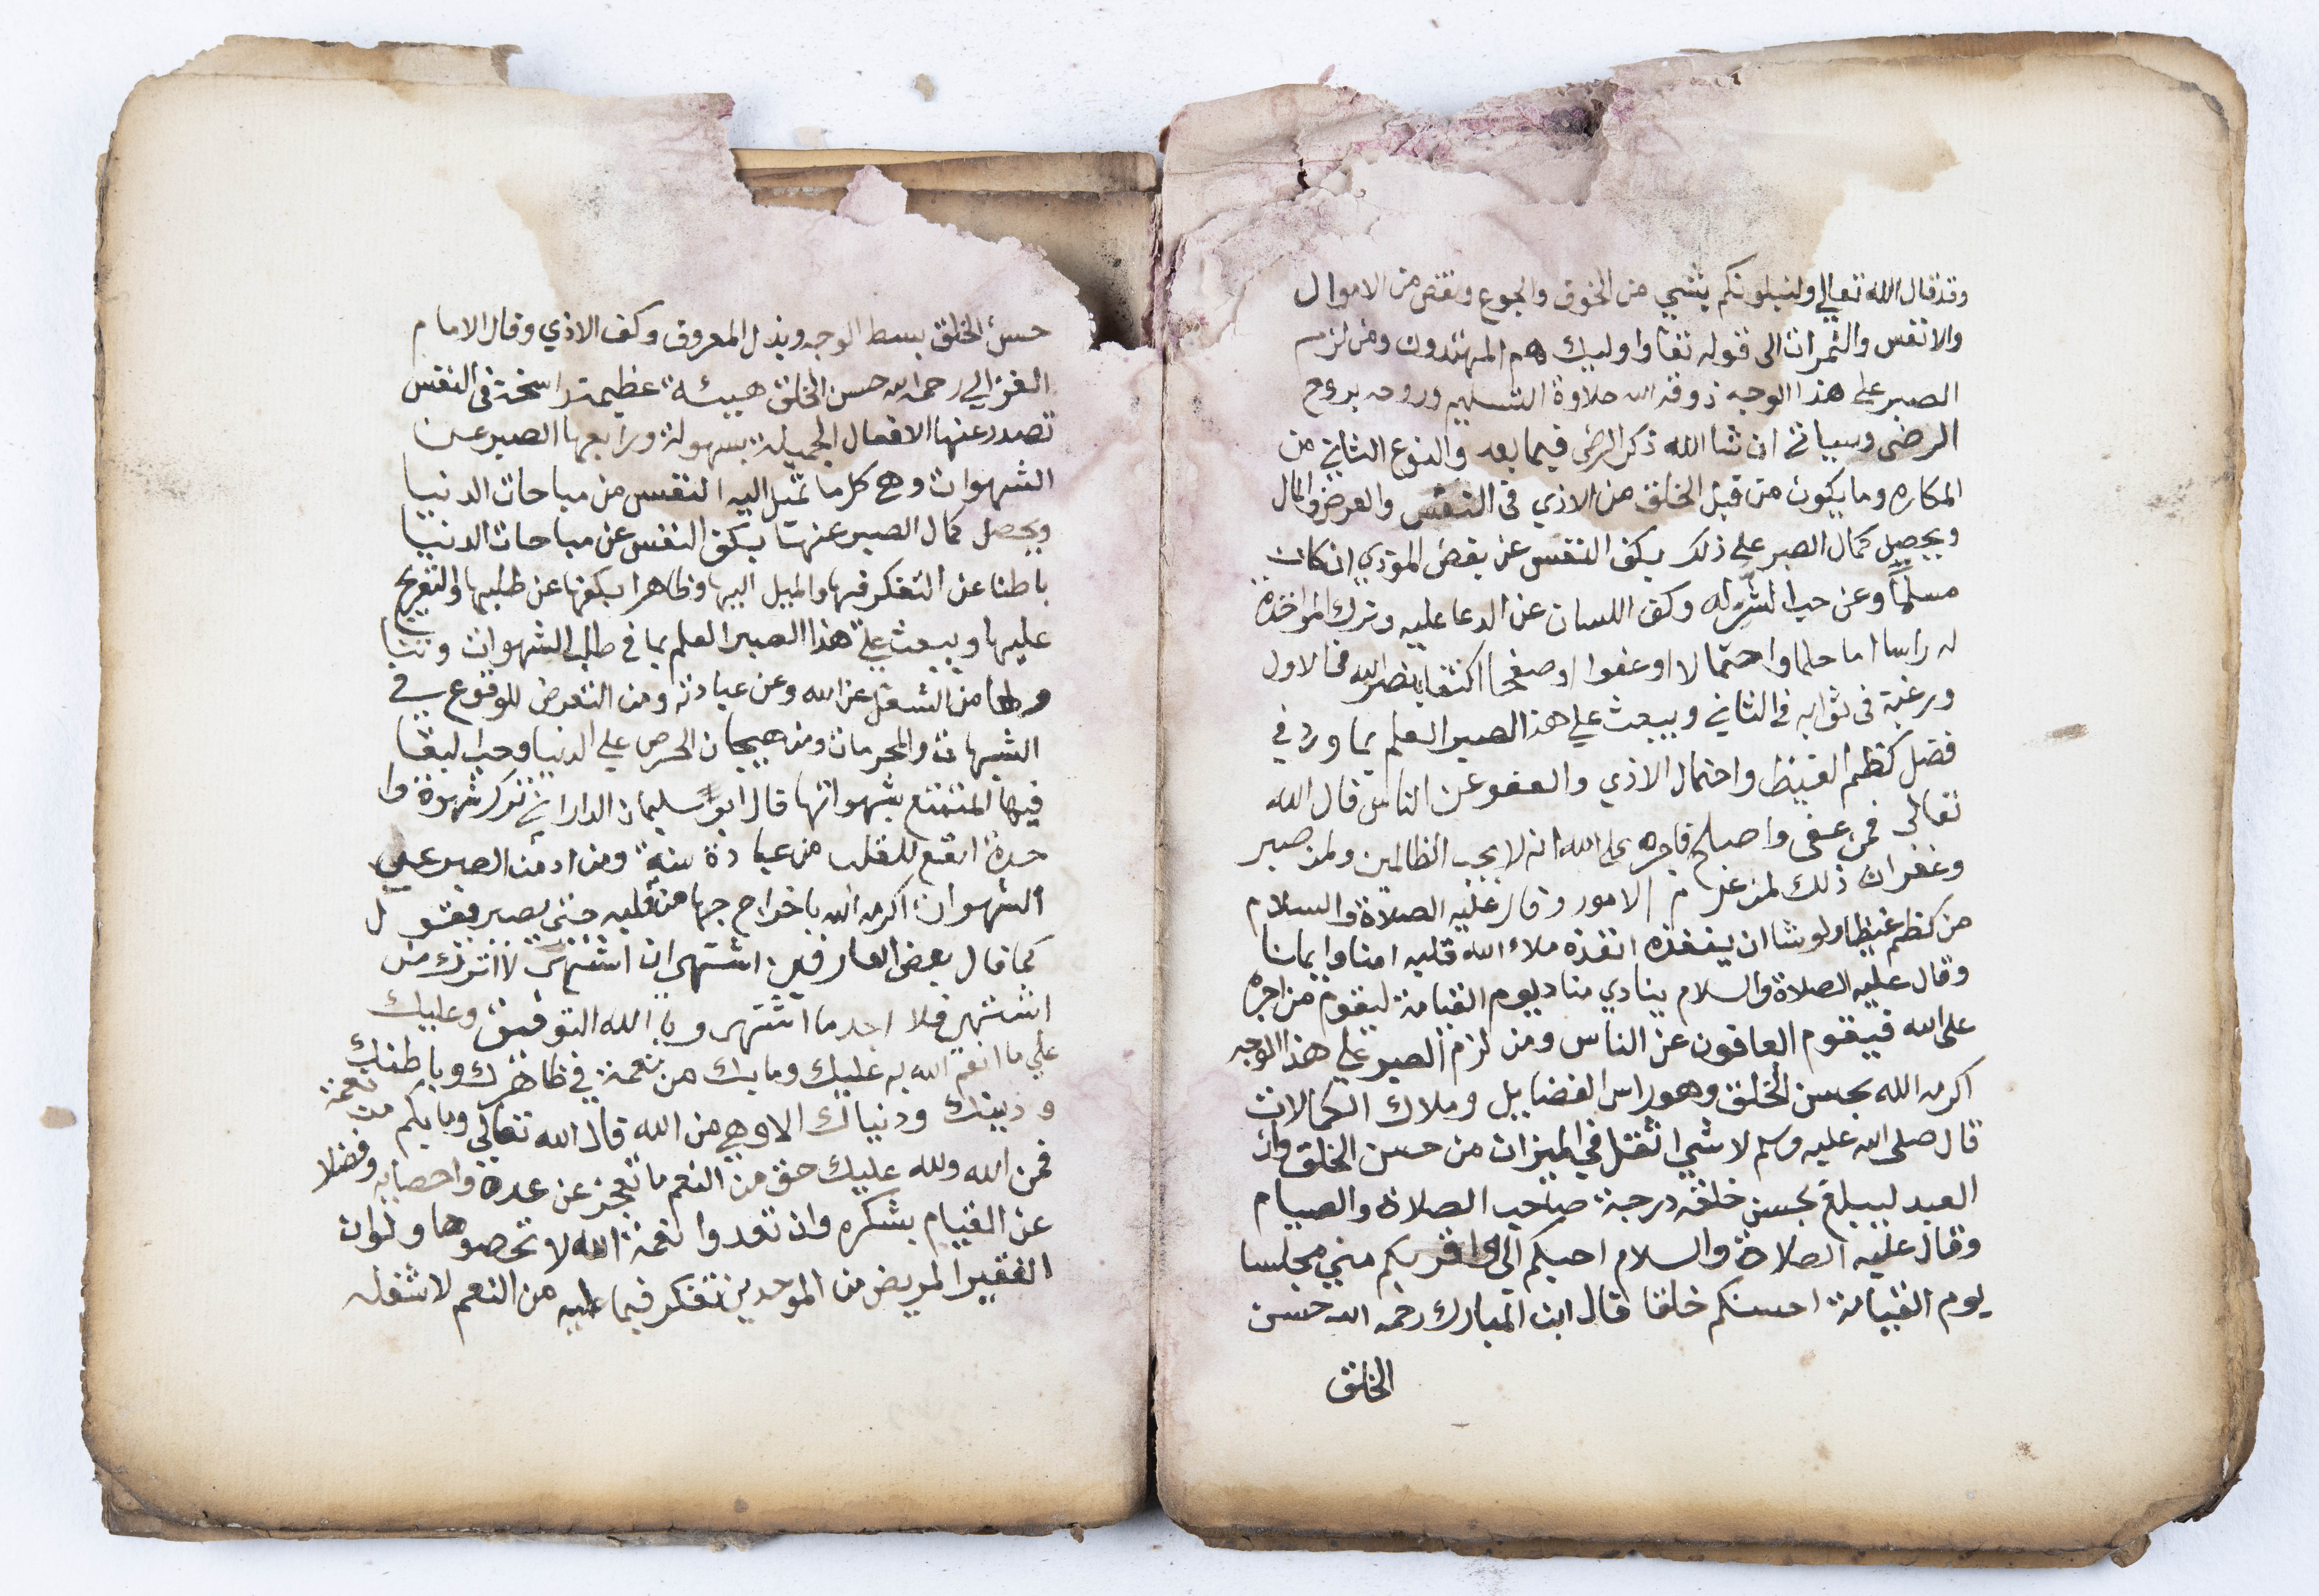 وقد قال الله تعالي ولنبلونكم بشي من الخوف والجوع ونقص من الاموال
والانفس والثمرات الى قوله تعا واوليك هم المهتدون ومن لزم
الصبر على هذا الوجه ذوقه الله حلاوة التسليم وروحه بروح
الرضى وسياتي ان شا الله ذكر الرضى فيما بعد والنوع الثاني من
المكاره وما يكون من قبل الخلق من الاذي في النفس والعرض والمال
ويحصيل كمال الصبر على ذلك بكف النفس عن بغض الموذي ان كان
مسلماً وعن حب الشر له وكف اللسان عن الدعا عليه وترك المواخذة
له راسا اما حلما واحتمالا او عفوا وصفحا اكتفا بنصر الله في الاول
ورغبة في ثوابه في الثاني ويبعث علي هذا الصبر العلم بما ورد في
فضل كظم الغيظ واحتمال الاذي والعفو عن الناس قال الله
تعالى فمن عفى واصلح فاجره على الله انه لا يحب الظالمين ولمن صبر
وغفر ان ذلك لمن عزم الامور وقال عليه الصلاة والسلام
من كظم غيظا ولو شا ان ينفذه انفذه ملاء الله قلبه امنا وايمانا
وقال عليه الصلاة والسلام ينادي مناد يوم القيامة ليقوم من اجره
على الله فيقوم العافون عن الناس ومن لزم الصبر علي هذا الوجه
اكرمه الله بحسن الخلق وهو راس الفضايل وملاك الكمالات
قال صلى الله عليه وسلم لا شي اثقل في الميزان من حسن الخلق وان
العبد ليبلغ بحسن خلقه درجة صاحب الصلاة والصيام
وقال عليه الصلاة والسلام احبكم الي واقربكم مني مجلسا
يوم القيامة احسنكم خلقا قال ابن المبارك رحمه الله حسن
الخلق
حسن الخلق بسط الوجه وبذل المعروف وكف الاذي وقال الامام
الغزالي رحمه الله حسن الخلق هيئة عظيمة راسخة في النفس
تصدر عنها الافعال الجميلة بسهولة ورابعها الصبر عن
الشهوات وهي كل ما تميل اليه النفس من مباحات الدنيا
ويحصل كمال الصبر عنها بكف النفس عن مباحات الدنيا
باطنا عن التفكر فيها والميل اليها وظاهرا بكفها عن طلبها والتعريج
عليها ويبعث على هذا الصبر العلم بما في طلب الشهوات
من الشغل عن الله وعن عبادته ومن التعرض للوقوع في
الشبهات والمحرمات ومن هيجان الحرص علي الدنيا وحب البقا
فيها المتمتع بشهواتها قال ابو سليمان الداراني ترك شهوة وا
حدة انفع للقلب من عبادة سنة ومن ادمن الصبر عن
الشهوات اكرمه الله باخراج حبها من قلبه حتى يصير يقول
كما قال بعض العارفين اشتهى ان اشتهى لا اترك من
اشتهى فلا اجد ما اشتهى وبا الله التوفيق وعليك
علي ما انعم الله به عليك وما بك من نعمة في ظاهرك وباطنك
ودينك ودنياك الا وهي من الله قال الله تعالى وما بكم من نعمة
فمن الله ولله عليك حق من النعم ما تعجز عن عده واحصايه وفضلا
عن القيام بشكره وان تعدوا نعمة الله لا تحصوها ولو ان
الفقير المريض من الموحدين تفكر فيما عليه من النعم لاشغله